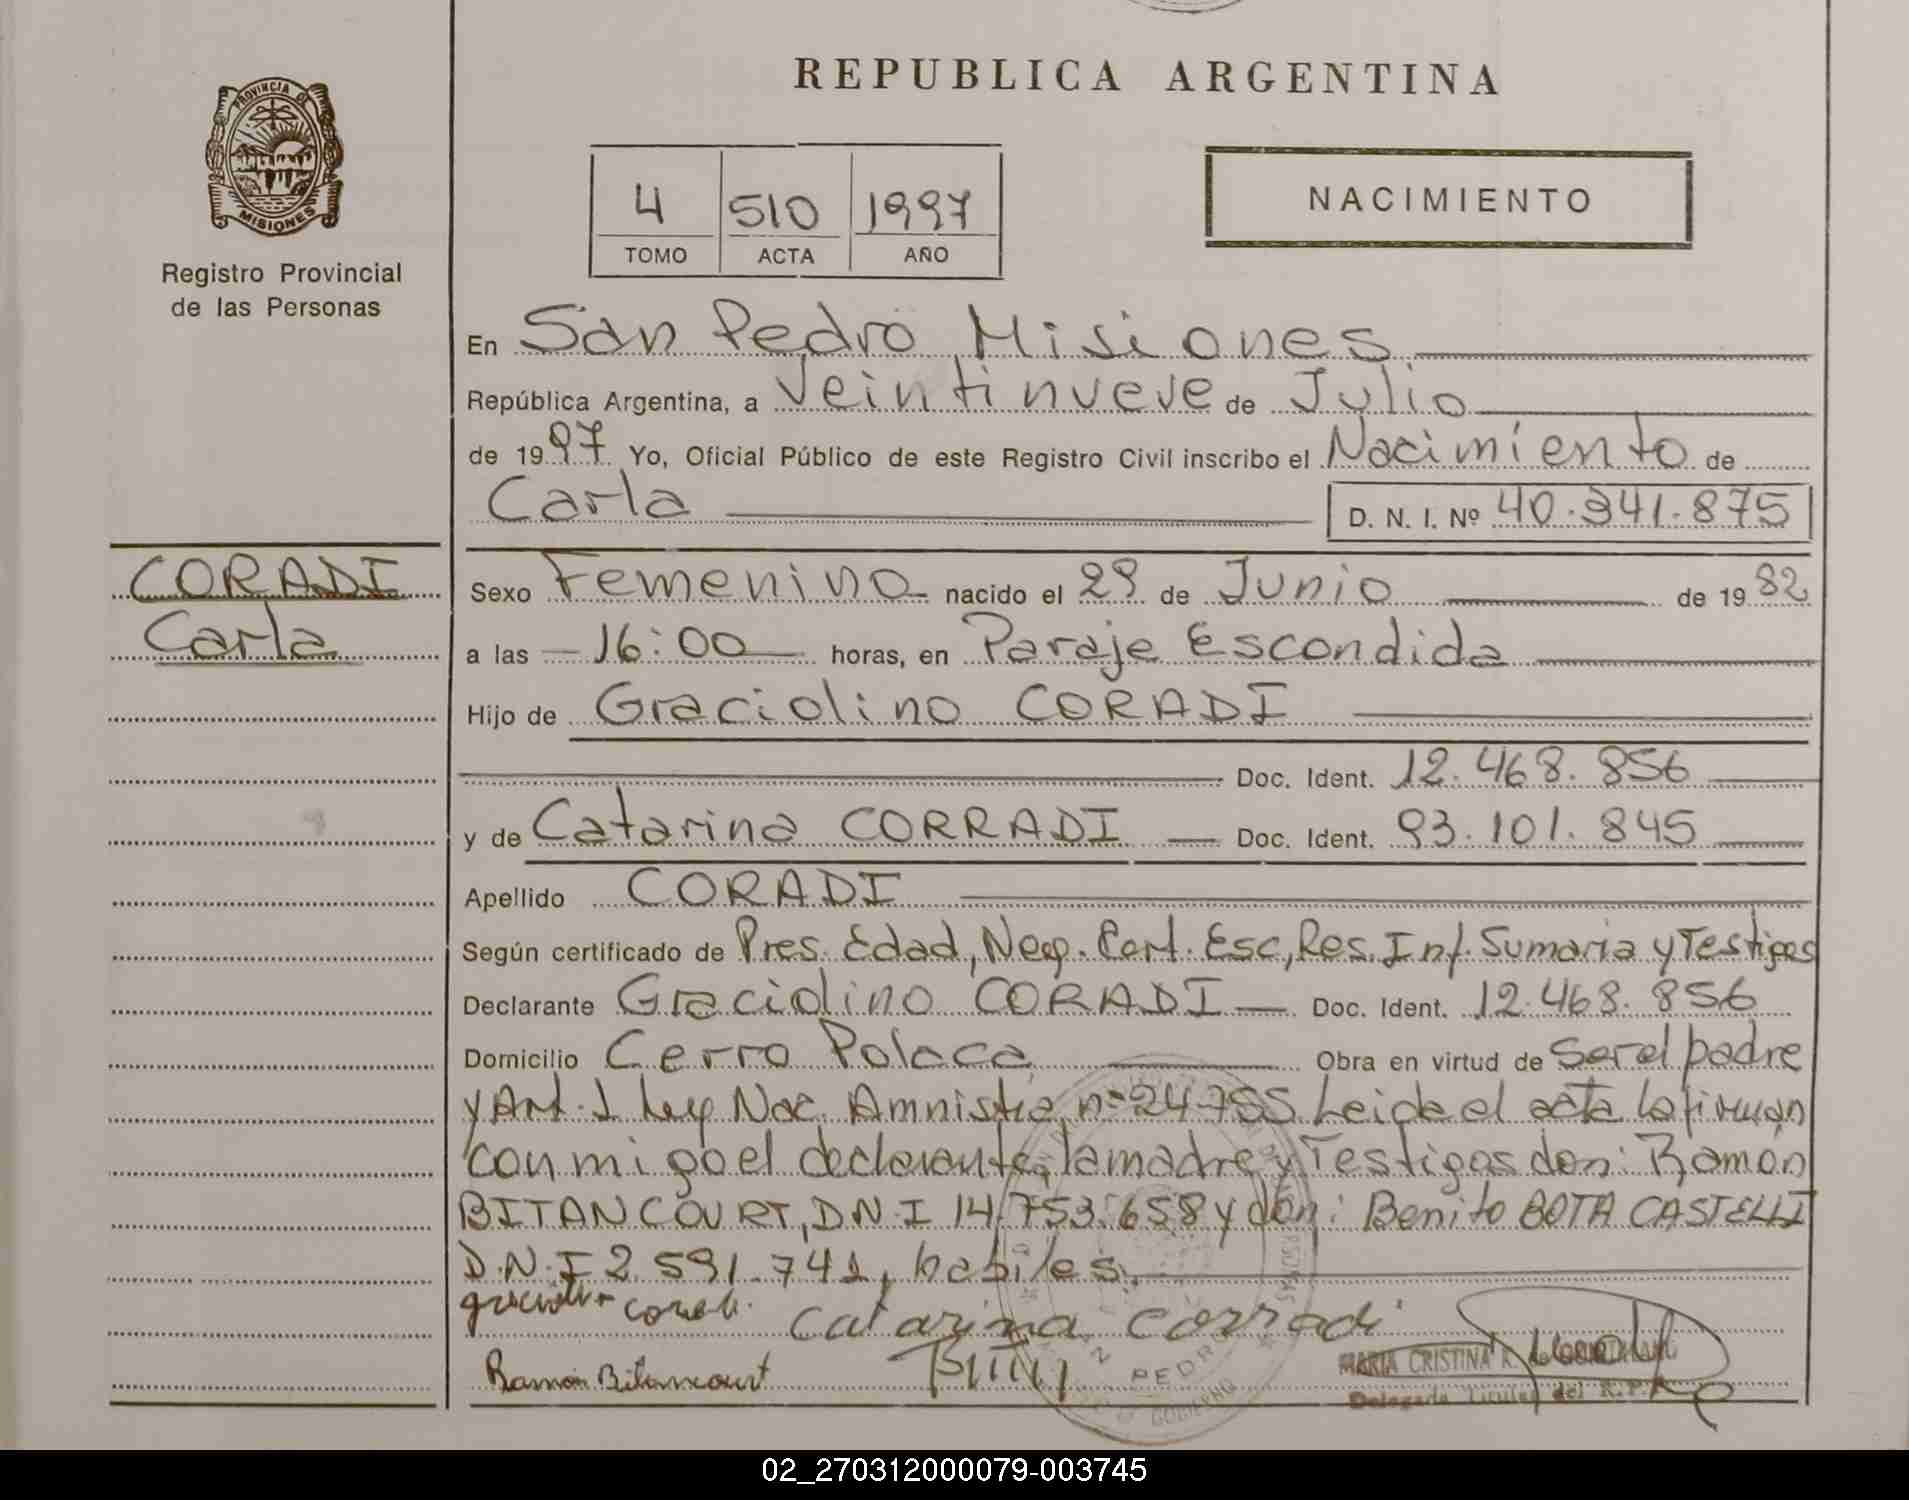 REPUBLICA ARGENTINA
PROVINCIA DE
MISIONES
Registro Provincial
de las Personas
4 510 1997
TOMO ACTA AÑO
NACIMIENTO
En San Pedro Misiones
República Argentina, a Veintinueve de Julio
de 1997 Yo, Oficial Público de este Registro Civil inscribo el Nacimiento de
Carla D. N. I. Nº 40.341.875
CORADI
Carla
Sexo Femenino nacido el 29 de Junio de 1982
a las 16:00 horas, en Paraje Escondida
Hijo de Graciolino CORADI
Doc. Ident. 12.468.856
y de Catarina CORRADI Doc. Ident. 93.101.845
Apellido CORADI
Según certificado de Pres. Edad, Neg. Cert. Esc, Res. Inf. Sumaria y Testigos
Declarante Graciolino CORADI Doc. Ident. 12.468.856
Domicilio Cerro Polaca Obra en virtud de Ser el padre
y Art. 1 Ley Nac. Amnistia nº 24755 Leida el acta la firman
conmigo el declarante, la madre y Testigos don: Ramón
BITANCOURT, D.N.I 14.753.658 y don: Benito BOTA CASTELLI
D.N.I 2.591.741, habiles.
Catarina Corradi
Ramón Bitancourt
MARIA CRISTINA R.
Delegada Titular del R.P.
PEDRO
GOBIERNO
02_270312000079-003745